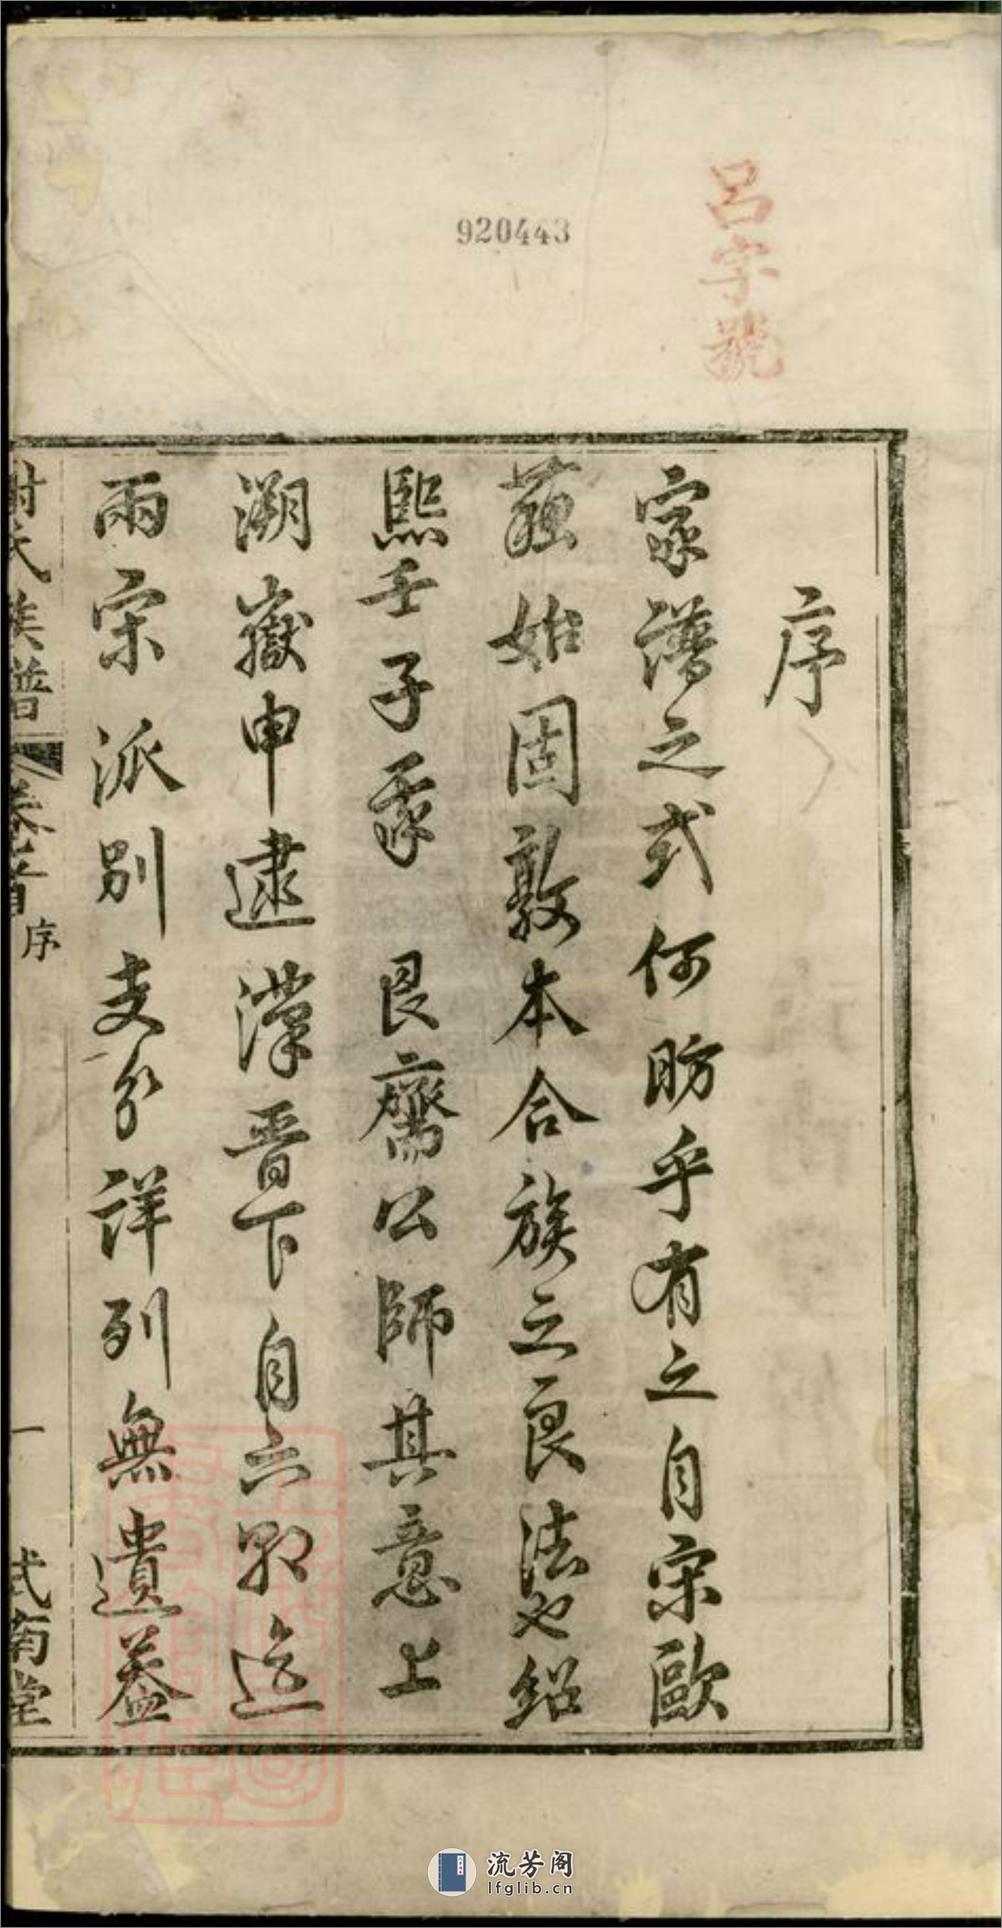 呂字號
920443
序
家譜之式何昉乎有之自宋歐
蘇始固敦本合族之良法也紹
熙壬子季 艮齋公師其意上
溯嶽申逮漢晉下自六朝迄
兩宋派別支分詳列無遺蓋
謝氏族譜 卷之首 序 一 式南堂
流芳阁
lfglib.cn